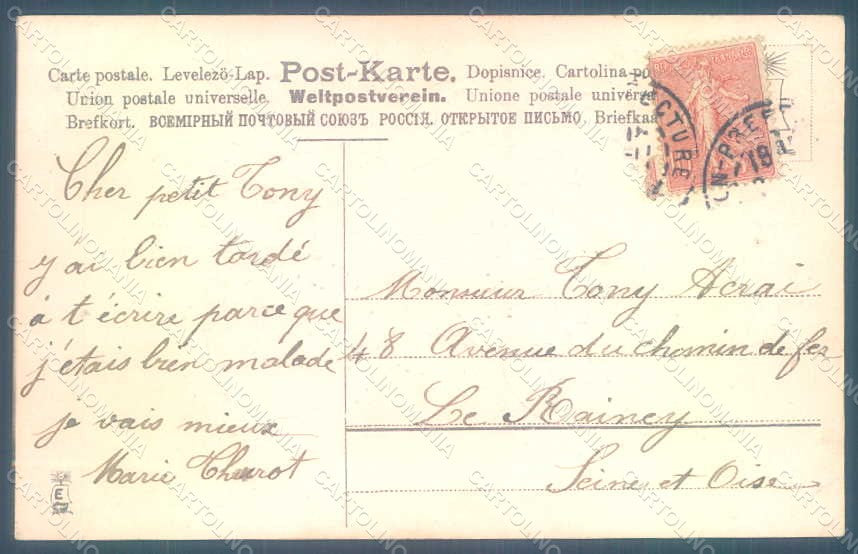 Carte postale. Levelezö-Lap. Post-Karte. Dopisnice. Cartolina-po
Union postale universelle. Weltpostverein. Unione postale universa
Brefkort. ВСЕМІРНЫЙ ПОЧТОВЫЙ СОЮЗЪ РОССІЯ. ОТКРЫТОЕ ПИСЬМО. Briefkaa
Cher petit Tony
y'ai bien tardé
à t'écrire parce que
j'étais bien malade
je vais mieux
Marie Thurot
Monsieur Tony Acrai
48 Avenue du chemin de fer
Le Rainey
Seine et Oise
E
CARTOLINOMANIA